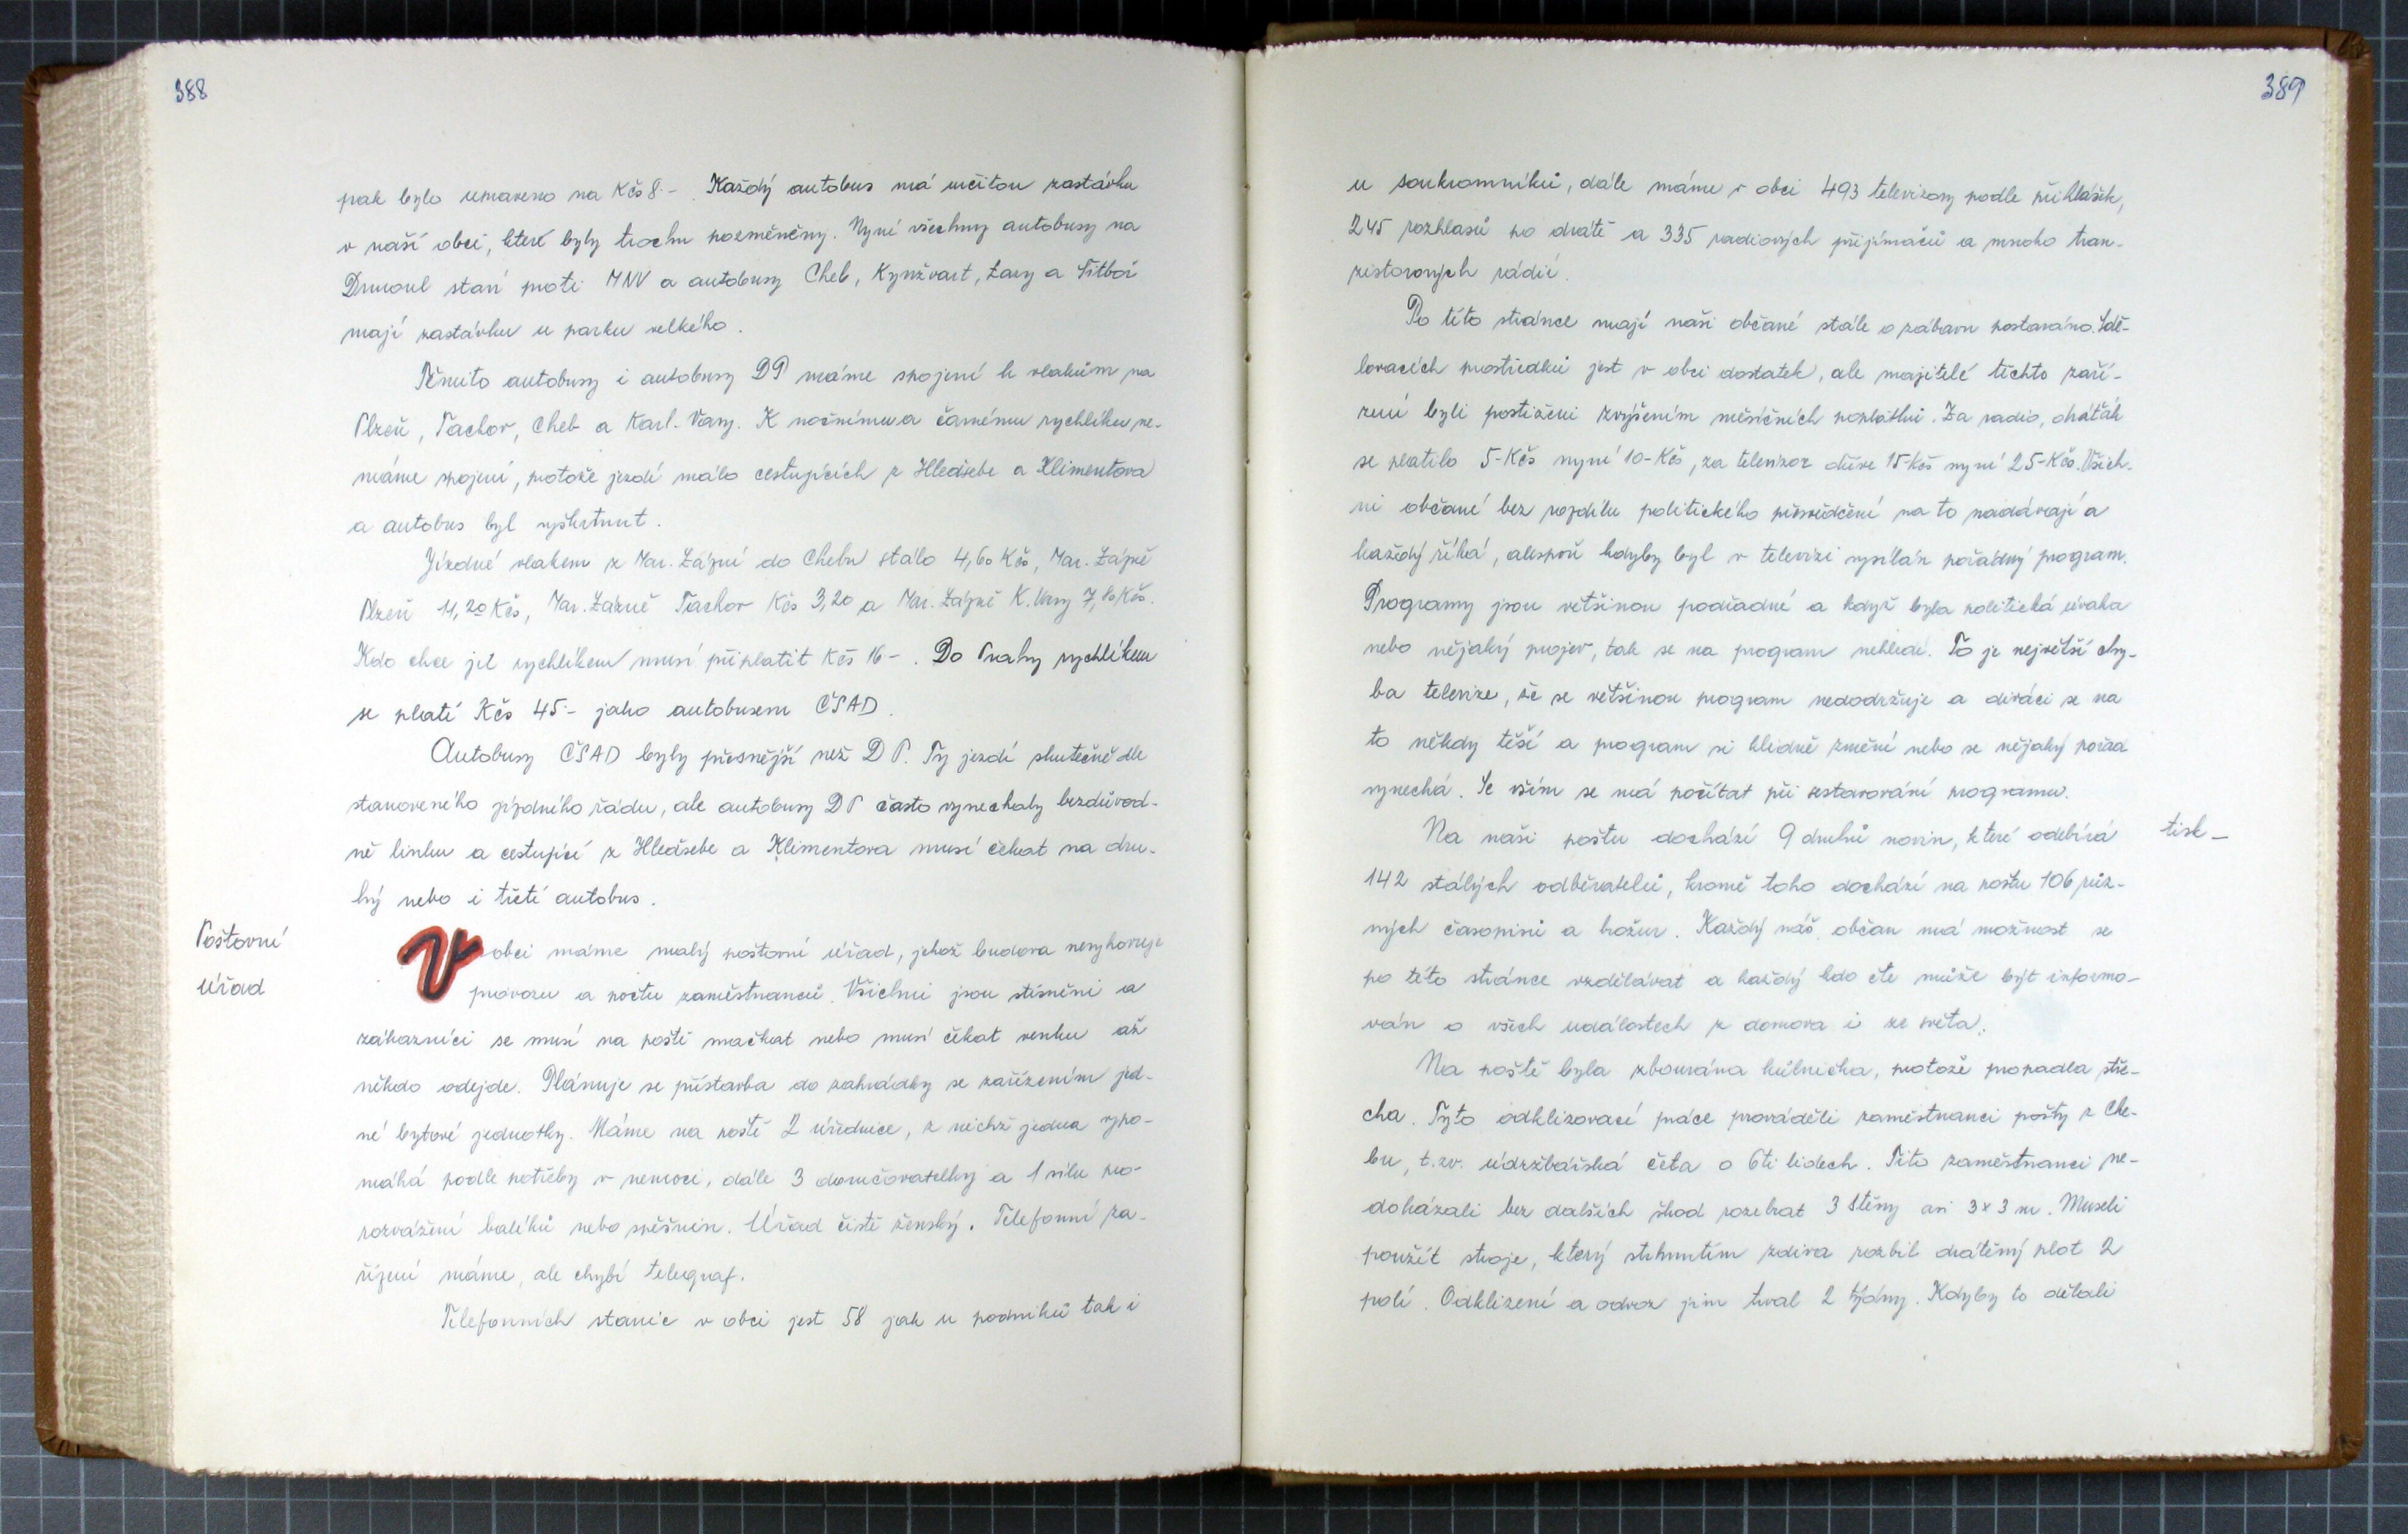 388
pak bylo upraveno na Kčs 8.-. Každý autobus má určitou zastávku
v naší obci, které byly trochu pozměněny. Nyní všechny autobusy na
Drmoul staví proti MNV a autobusy Cheb, Kynžvart, Lazy a Štítboř
mají zastávku u parku velkého.
Těmito autobusy i autobusy DP máme spojení k vlakům na
Plzeň, Tachov, Cheb a Karl. Vary. K nočnímu a rannímu rychlíku ne-
máme spojení, protože jezdí málo cestujících z Hleďsebe a Klimentova
a autobus byl vyškrtnut.
Jízdné vlakem z Mar. Lázní do Chebu stálo 4,60 Kčs, Mar. Lázně
Plzeň 11,20 Kčs, Mar. Lázně Tachov Kčs 3,20 a Mar. Lázně K. Vary 7,80 Kčs.
Kdo chce jet rychlíkem musí připlatit Kčs 16-. Do Prahy rychlíkem
se platí Kčs 45.- jako autobusem ČSAD.
Autobusy ČSAD byly přesnější než DP. Ty jezdí skutečně dle
stanoveného jízdního řádu, ale autobusy DP často vynechaly bezdůvod-
ně linku a cestující z Hleďsebe a Klimentova musí čekat na dru-
hý nebo i třetí autobus.
Poštovní
úřad
V obci máme malý poštovní úřad, jehož budova nevyhovuje
provozu a počtu zaměstnanců. Všichni jsou stísněni a
zákazníci se musí na poště mačkat nebo musí čekat venku až
někdo odejde. Plánuje se přístavba do zahrádky se zařízením jed-
né bytové jednotky. Máme na poště 2 úřednice, z nichž jedna vypo-
máhá podle potřeby v nemoci, dále 3 doručovatelky a 1 sílu pro
rozvážení balíků nebo spěšnin. Úřad čistě ženský. Telefonní za-
řízení máme, ale chybí telegraf.
Telefonních stanic v obci jest 58 jak u podniků tak i
389
u soukromníků, dále máme v obci 493 televizory podle přihlášek,
245 rozhlasů po drátě a 335 radiových přijímačů a mnoho tran-
zistorových rádií.
Po této stránce mají naši občané stále o zábavu postaráno. Sdě-
lovacích prostředků jest v obci dostatek, ale majitelé těchto zaří-
zení byli postiženi zvýšením měsíčních poplatků. Za radio, dráťák
se platilo 5-Kčs nyní 10-Kčs, za televizor dříve 15-Kčs nyní 25-Kčs. Všich-
ni občané bez rozdílu politického přesvědčení na to nadávají a
každý říká, alespoň kdyby byl v televizi vysílán pořádný program.
Programy jsou většinou podřadné a když byla politická úvaha
nebo nějaký projev, tak se na program nehledí. To je největší chy-
ba televize, že se většinou program nedodržuje a diváci se na
to někdy těší a program si klidně změní nebo se nějaký pořad
vynechá. Se vším se má počítat při sestavování programu.
Na naši poštu dochází 9 druhů novin, které odebírá
tisk-
142 stálých odběratelů, kromě toho dochází na poštu 106 růz-
ných časopisů a brožur. Každý náš občan má možnost se
po této stránce vzdělávat a každý kdo čte může být informo-
ván o všech událostech z domova i ze světa.
Na poště byla zbourána kůlnička, protože propadla stře-
cha. Tyto odklizovací práce prováděli zaměstnanci pošty z Che-
bu, t.zv. údržbářská četa o 6ti lidech. Tito zaměstnanci ne-
dokázali bez dalších škod rozebrat 3 stěny asi 3x3 m. Museli
použít stroje, který strhnutím zdiva rozbil drátěný plot 2
polí. Odklizení a odvoz jim trval 2 týdny. Kdyby to dělali